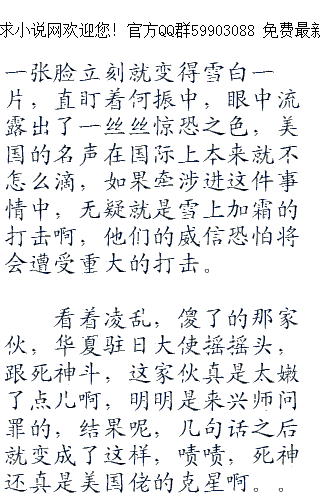 求小说网欢迎您！官方QQ群59903088 免费最新
一张脸立刻就变得雪白一
片，直盯着何振中，眼中流
露出了一丝丝惊恐之色，美
国的名声在国际上本来就不
怎么滴，如果牵涉进这件事
情中，无疑就是雪上加霜的
打击啊，他们的威信恐怕将
会遭受重大的打击。
看着凌乱，傻了的那家
伙，华夏驻日大使摇摇头，
跟死神斗，这家伙真是太嫩
了点儿啊，明明是来兴师问
罪的，结果呢，几句话之后
就变成了这样，啧啧，死神
还真是美国佬的克星啊。。